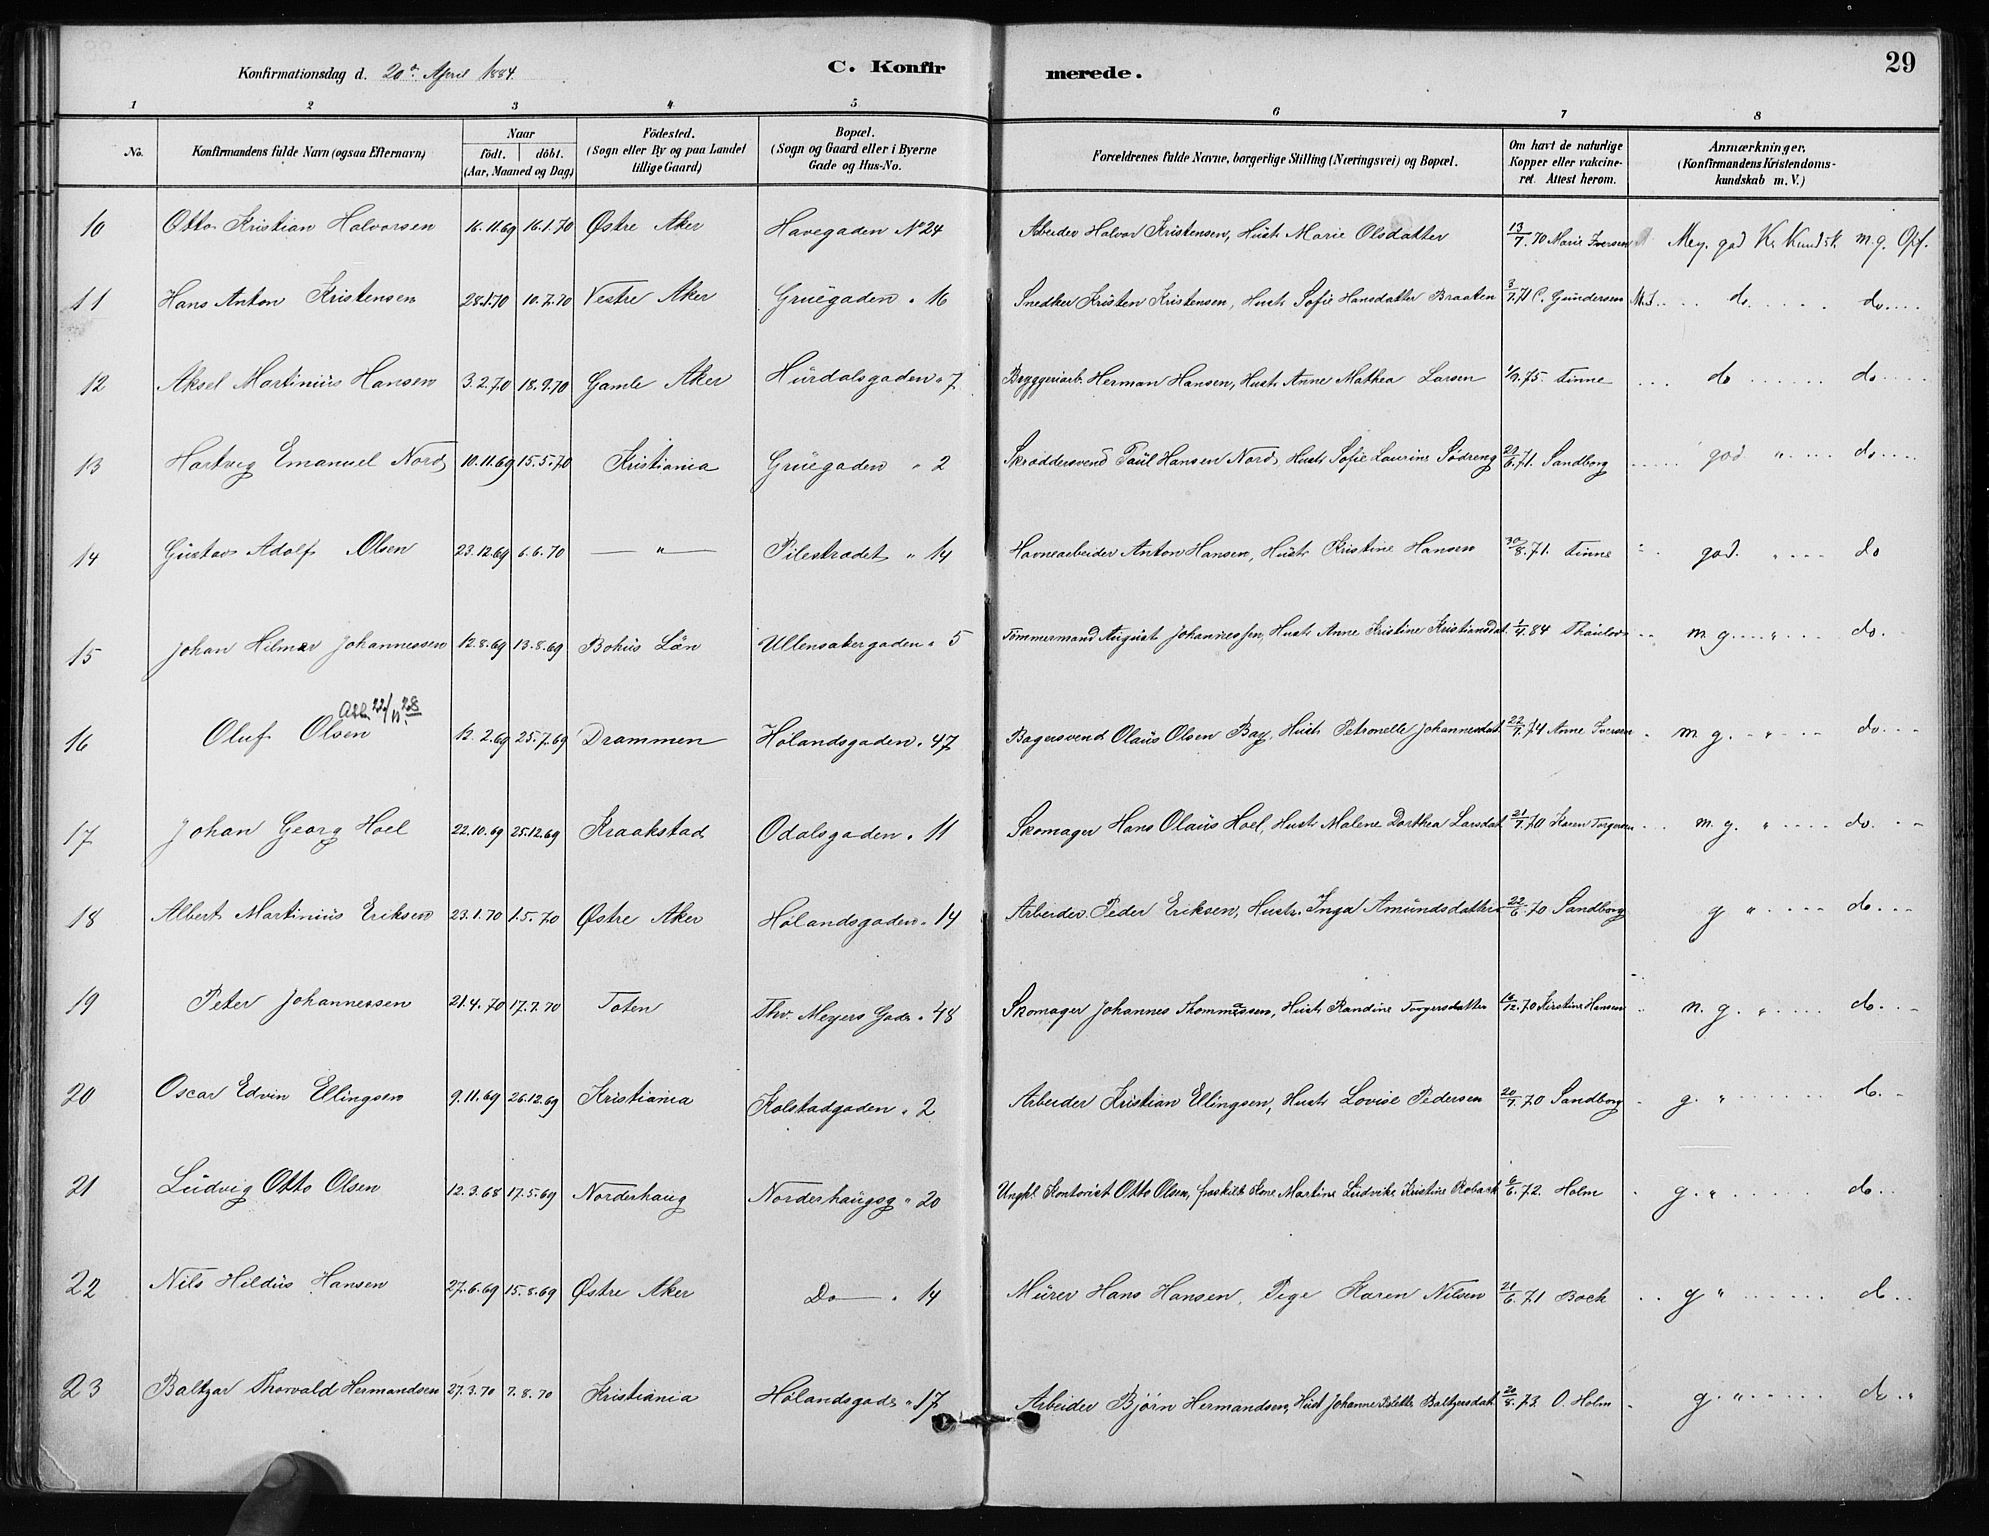 Konfirmationsdag d. 20de April 1884. C. Konfirmerede. 29
1 2 3 4 5 6 7 8
No. Konfirmandens fulde Navn (ogsaa Efternavn) Naar födt. döbt. (Aar, Maaned og Dag) Födested. (Sogn eller By og paa Landet tillige Gaard) Bopæl. (Sogn og Gaard eller i Byerne Gade og Hus-No. Forældrenes fulde Navne, borgerlige Stilling (Næringsvei) og Bopæl. Om havt de naturlige Kopper eller vakcineret. Attest herom. Anmærkninger, (Konfirmandens Kristendomskundskab m. V.)
10 Otto Kristian Halvorsen 16.11.69 16.1.70 Østre Aker Havegaden No 24 Arbeider Halvor Kristensen, Hustr. Marie Olsdatter 13/7.70 Marie Iversen Meg. god Kr. Kundsk. m.g. Opf.
11 Hans Anton Kristensen 28.1.70 10.7.70 Vestre Aker Grüegaden " 16 Snedker Kristen Kristensen, Hustr. Sofie Hansdatter Braaten 3/7.71 C. Gundersen do do
12 Aksel Martinius Hansen 3.2.70 18.9.70 Gamle Aker Hurdalsgaden " 7 Bryggeriarb. Herman Hansen, Hustr. Anne Mathea Larsen 1/9.75. Finne do do
13 Hartvig Emanuel Nord 10.11.69 15.5.70 Kristiania Grüegaden " 2 Skræddersvend Paul Hansen Nord, Hustr. Sofie Laurine Södreng 22/6.71. Sandborg god " do
14 Gustav Adolf Olsen 23.12.69 6.6.70 — " — Pilestrædet " 14 Havnearbeider Anton Hansen, Hustr. Kristine Hansen 30/8.71. Finne god. " do
15 Johan Hilmar Johannessen 12.8.69 13.8.69 Bohus Län Ullensakergaden " 5 Tömmermand August Johannessen, Hustr. Anne Kristine Kristiansdat. 1/4.84 Thaulow m g. " do.
Att. 22/11 28
16 Oluf Olsen 13.2.69 25.7.69 Drammen Hølandsgaden " 47 Bagersvend Olaus Olsen Bay, Hustr. Petronelle Johannesdat. 22/7.74 Anne Iversen m g. " do.
17 Johan Georg Hoel 22.10.69 25.12.69 Kraakstad Odalsgaden " 11 Skomager Hans Olaus Hoel, Hustr. Malene Dorthea Larsdat. 21/7.70 Karen Torgersen m. g. " do.
18 Albert Martinius Eriksen 23.1.70 1.5.70 Østre Aker Hølandsgaden " 14 Arbeider Peder Eriksen, Hustr. Inga Amundsdatter 22/6.70 Sandborg g " do.
19 Peter Johannessen 21.4.70 17.7.70 Toten Thv. Meyers Gade " 48 Skomager Johannes Thommessen, Hustr. Randine Torgersdatter 12.70 Kirstine Hansen m. g. " do.
20 Oscar Edvin Ellingsen 9.11.69 26.12.69 Kristiania Kolstadgaden " 2 Arbeider Kristian Ellingsen, Hustr. Lovise Pedersen 20/7.70 Sandborg g. " do.
21 Ludvig Otto Olsen 12.3.68 17.5.69 Norderhaug Norderhaugsg " 20 Ungkl. Kontorist Otto Olsen, fraskilt Kone Martine Ludvike Kristine Roback 6.72. Holm g. " do.
22 Nils Hildus Hansen 27.6.69 15.8.69 Østre Aker Do — " 14 Mürer Hans Hansen, Pige Karen Nilsen 21/6.71 Bock g " do
23 Baltzar Thorvald Hermandsen 27.3.70 7.8.70 Kristiania Hølandsgade " 17 Arbeider Bjørn Hermandsen, Hust Johanne Baltzersdat. 20/8.72. O. Holm g. " do "